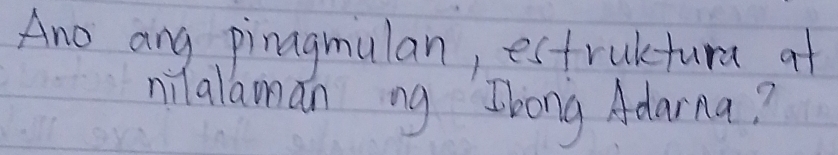 Ano ang pinagmulan, estruktura at
nilalaman ng Ibong Adarna?